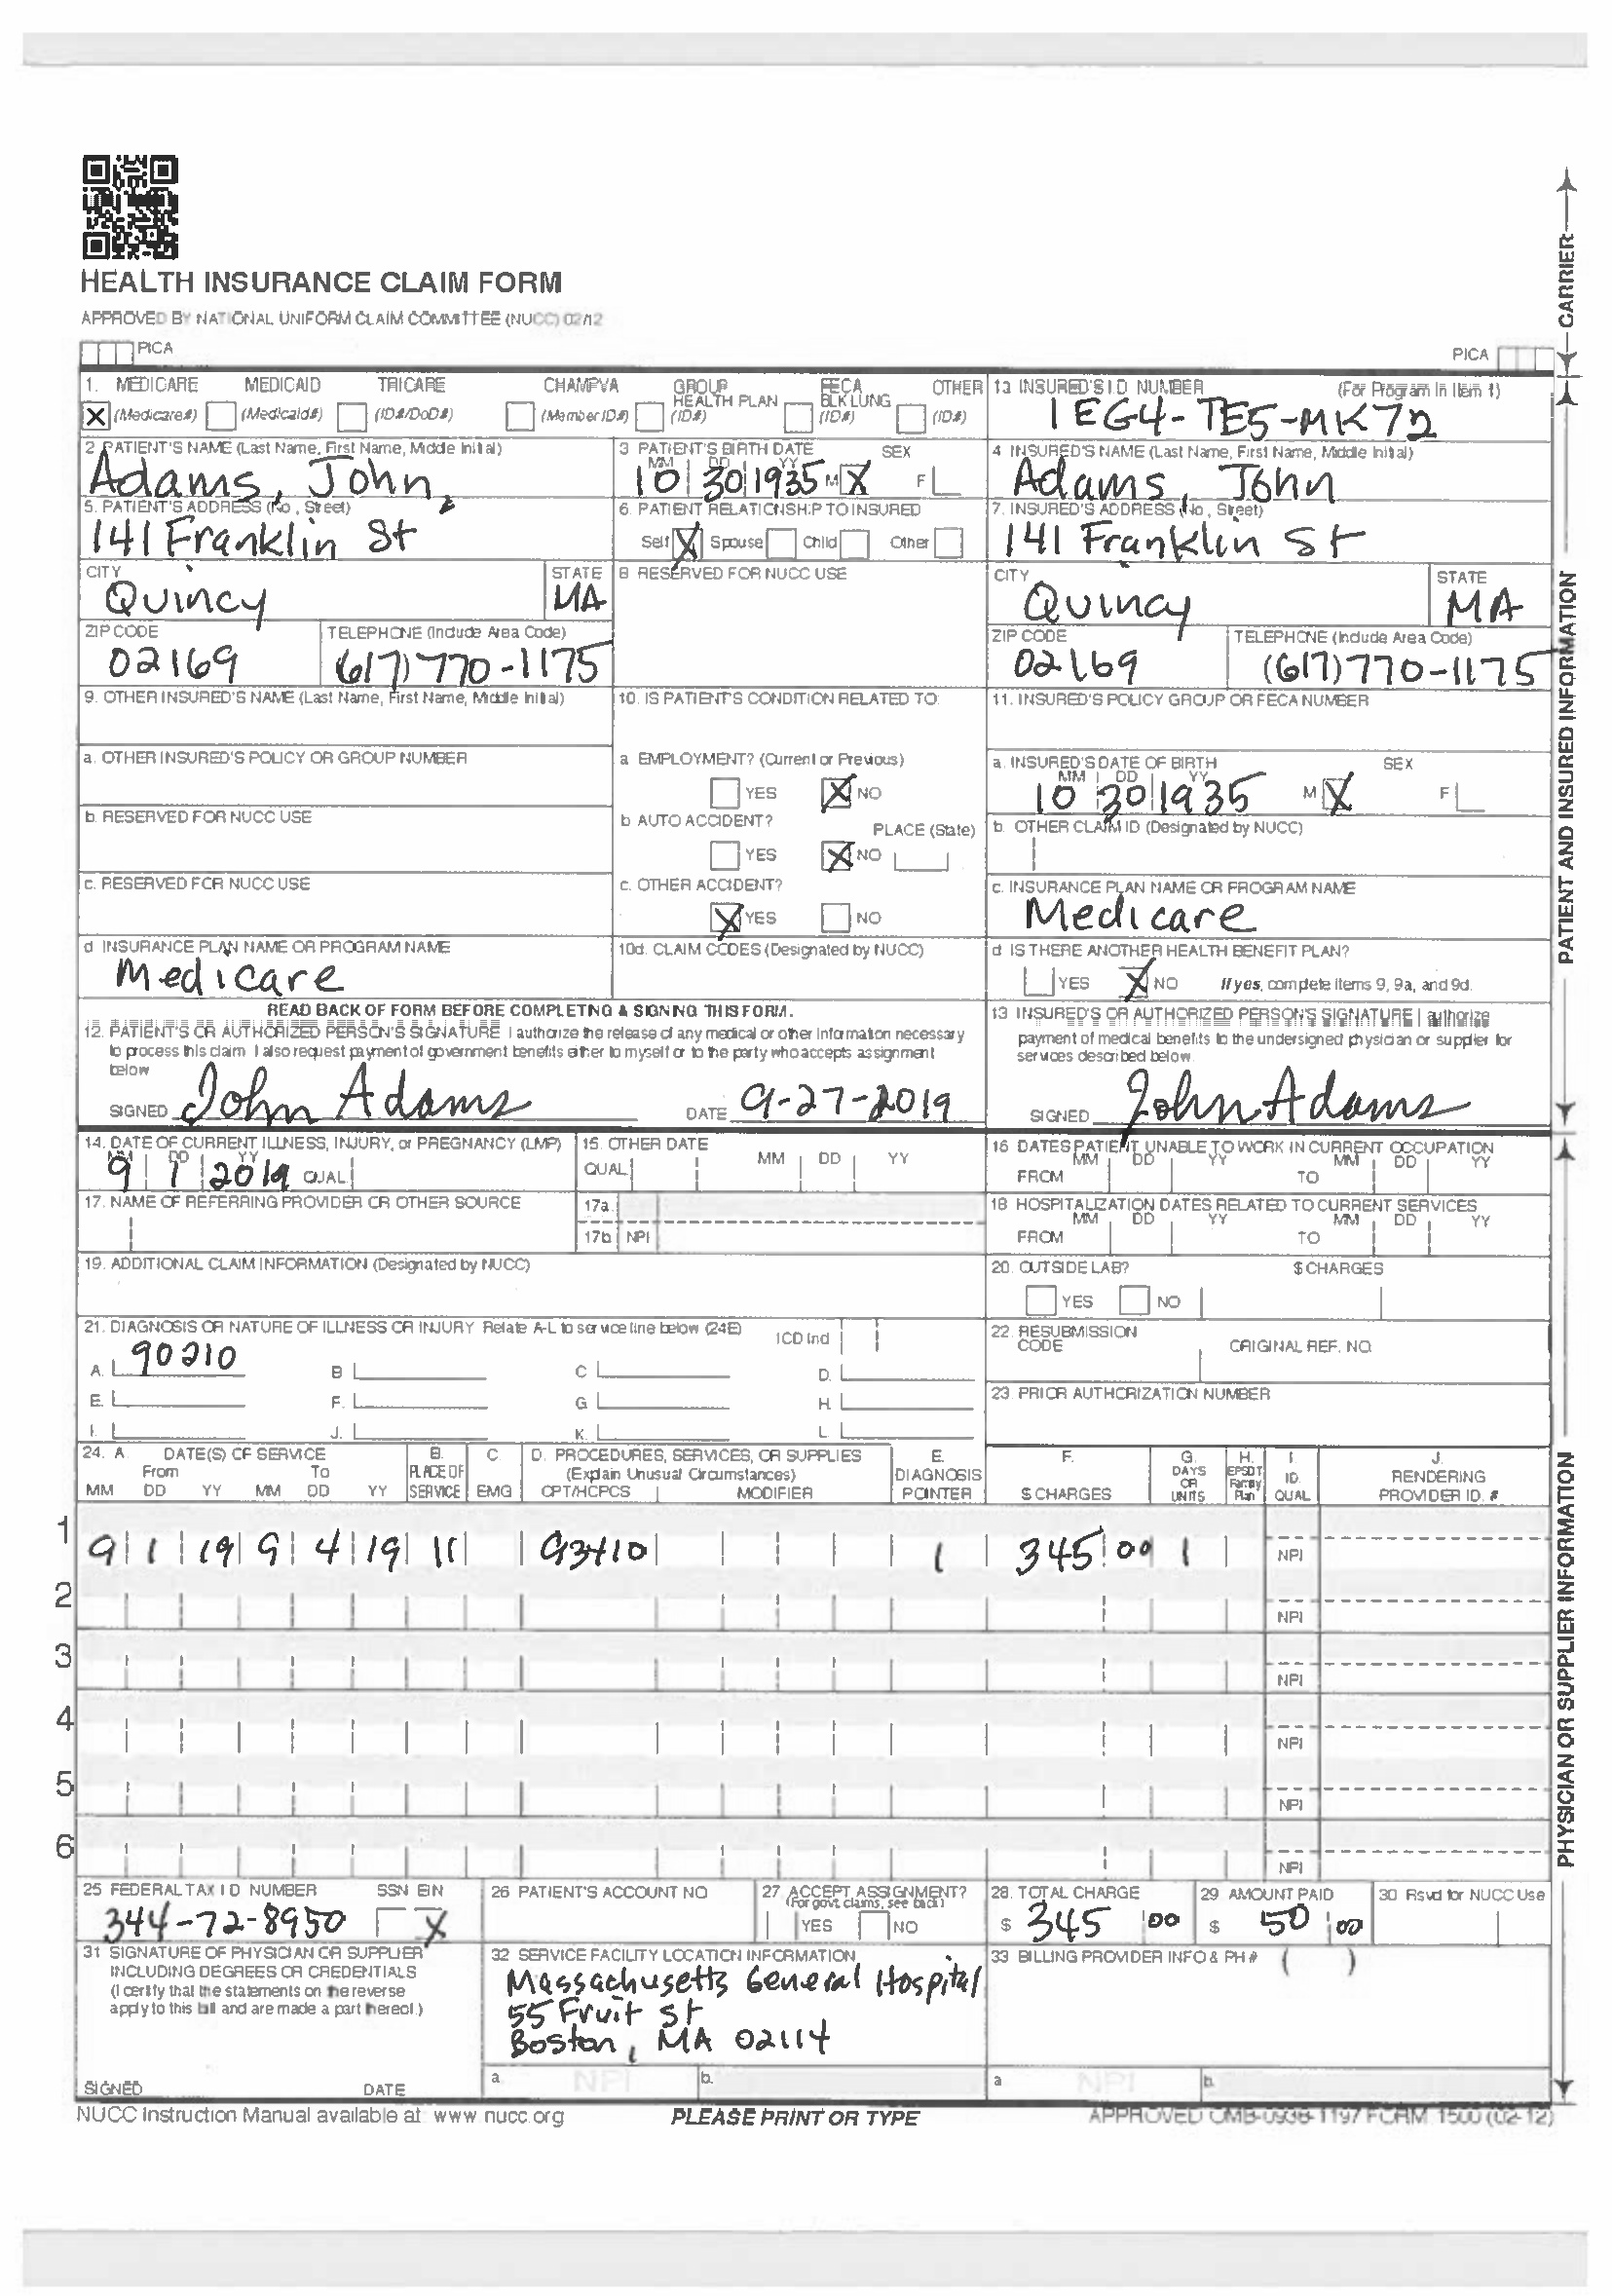 HEALTH INSURANCE CLAIM FORM
APPROVED BY NATIONAL UNIFORM CLAIM COMMITTEE (NUCC) 02/12
PICA
PICA
CARRIER
1. MEDICARE MEDICAID TRICARE CHAMPVA GROUP HEALTH PLAN FECA BLK LUNG OTHER
X (Medicare#) (Medicaid#) (ID#/DoD#) (Member ID#) (ID#) (ID#) (ID#)
INSURED'S I.D. NUMBER (For Program in Item 1)
1EG4-TE5-MK72
2 PATIENT'S NAME (Last Name, First Name, Middle Initial)
Adams, John
3 PATIENT'S BIRTH DATE SEX
MM DD YY
10 30 1935 M X F
4 INSURED'S NAME (Last Name, First Name, Middle Initial)
Adams, John
5. PATIENT'S ADDRESS (No., Street)
141 Franklin St
6. PATIENT RELATIONSHIP TO INSURED
Self X Spouse Child Other
7. INSURED'S ADDRESS (No., Street)
141 Franklin St
CITY STATE
Quincy MA
8 RESERVED FOR NUCC USE
CITY STATE
Quincy MA
ZIP CODE TELEPHONE (Include Area Code)
02169 (617)770-1175
ZIP CODE TELEPHONE (Include Area Code)
02169 (617)770-1175
9. OTHER INSURED'S NAME (Last Name, First Name, Middle Initial)
10. IS PATIENT'S CONDITION RELATED TO:
11. INSURED'S POLICY GROUP OR FECA NUMBER
a. OTHER INSURED'S POLICY OR GROUP NUMBER
a EMPLOYMENT? (Current or Previous)
YES X NO
a. INSURED'S DATE OF BIRTH SEX
MM DD YY
10 30 1935 M X F
b. RESERVED FOR NUCC USE
b AUTO ACCIDENT? PLACE (State)
YES X NO
b. OTHER CLAIM ID (Designated by NUCC)
c. RESERVED FOR NUCC USE
c. OTHER ACCIDENT?
X YES NO
c. INSURANCE PLAN NAME OR PROGRAM NAME
Medicare
d INSURANCE PLAN NAME OR PROGRAM NAME
Medicare
10d. CLAIM CODES (Designated by NUCC)
d IS THERE ANOTHER HEALTH BENEFIT PLAN?
YES X NO If yes, complete items 9, 9a, and 9d.
READ BACK OF FORM BEFORE COMPLETING & SIGNING THIS FORM.
12. PATIENT'S OR AUTHORIZED PERSON'S SIGNATURE I authorize the release of any medical or other information necessary
to process this claim I also request payment of government benefits either to myself or to the party who accepts assignment
below
SIGNED John Adams DATE 9-27-2019
13 INSURED'S OR AUTHORIZED PERSON'S SIGNATURE I authorize
payment of medical benefits to the undersigned physician or supplier for
services described below
SIGNED John Adams
PATIENT AND INSURED INFORMATION
14. DATE OF CURRENT ILLNESS, INJURY, or PREGNANCY (LMP)
MM DD YY
9 1 2019 QUAL
15. OTHER DATE
QUAL MM DD YY
16 DATES PATIENT UNABLE TO WORK IN CURRENT OCCUPATION
MM DD YY MM DD YY
FROM TO
17. NAME OF REFERRING PROVIDER OR OTHER SOURCE
17a.
17b NPI
18 HOSPITALIZATION DATES RELATED TO CURRENT SERVICES
MM DD YY MM DD YY
FROM TO
19. ADDITIONAL CLAIM INFORMATION (Designated by NUCC)
20. OUTSIDE LAB? $ CHARGES
YES NO
21. DIAGNOSIS OR NATURE OF ILLNESS OR INJURY Relate A-L to service line below (24E) ICD Ind
A. 90210 B C D.
E. F. G H.
I. J. K. L.
22. RESUBMISSION
CODE ORIGINAL REF. NO.
23. PRIOR AUTHORIZATION NUMBER
24. A DATE(S) OF SERVICE B. C D. PROCEDURES, SERVICES, OR SUPPLIES E. F. G. H. I J.
From To PLACE OF (Explain Unusual Circumstances) DIAGNOSIS DAYS OR UNITS EPSDT Family Plan ID. RENDERING
MM DD YY MM DD YY SERVICE EMG CPT/HCPCS MODIFIER POINTER $ CHARGES QUAL. PROVIDER ID. #
1 9 1 19 9 4 19 11 93410 1 345 00 1 NPI
2 NPI
3 NPI
4 NPI
5 NPI
6 NPI
25 FEDERAL TAX I D NUMBER SSN EIN
344-72-8950 X
26 PATIENT'S ACCOUNT NO
27 ACCEPT ASSIGNMENT?
(For govt. claims, see back)
YES NO
28. TOTAL CHARGE
$ 345 00
29 AMOUNT PAID
$ 50 00
30 Rsvd for NUCC Use
31 SIGNATURE OF PHYSICIAN OR SUPPLIER
INCLUDING DEGREES OR CREDENTIALS
(I certify that the statements on the reverse
apply to this bill and are made a part thereof.)
SIGNED DATE
32 SERVICE FACILITY LOCATION INFORMATION
Massachusetts General Hospital
55 Fruit St
Boston, MA 02114
a. NPI b.
33 BILLING PROVIDER INFO & PH # ( )
a NPI b
PHYSICIAN OR SUPPLIER INFORMATION
NUCC Instruction Manual available at: www nucc.org
PLEASE PRINT OR TYPE
APPROVED OMB-0938-1197 FORM 1500 (02-12)